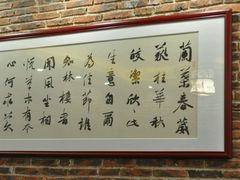 蘭葉春葳
蕤桂華秋
皎潔欣々此
生意自爾
為佳節誰
知林棲者
聞風坐相
悅草木有本
心何求美